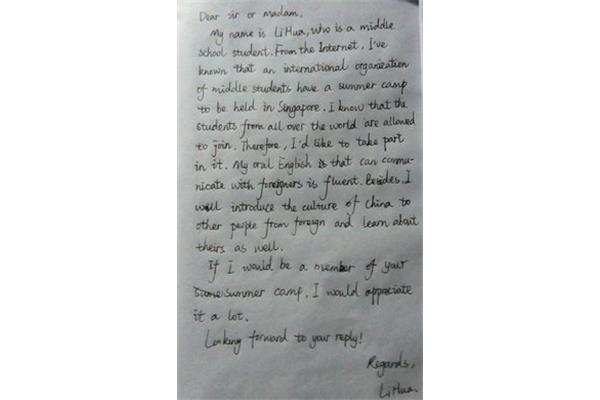 Dear sir or madam,
My name is LiHua, who is a middle
school student. From the Internet, I've
known that an international organization
of middle students have a summer camp
to be held in Singapore. I know that the
students from all over the world are allowed
to join. Therefore, I'd like to take part
in it. My oral English is that can commu-
nicate with foreigners is fluent. Besides, I
will introduce the culture of China to
other people from foreign and learn about
theirs as well.
If I would be a member of your
summer camp, I would appreciate
it a lot.
Looking forward to your reply!
Regards,
LiHua.